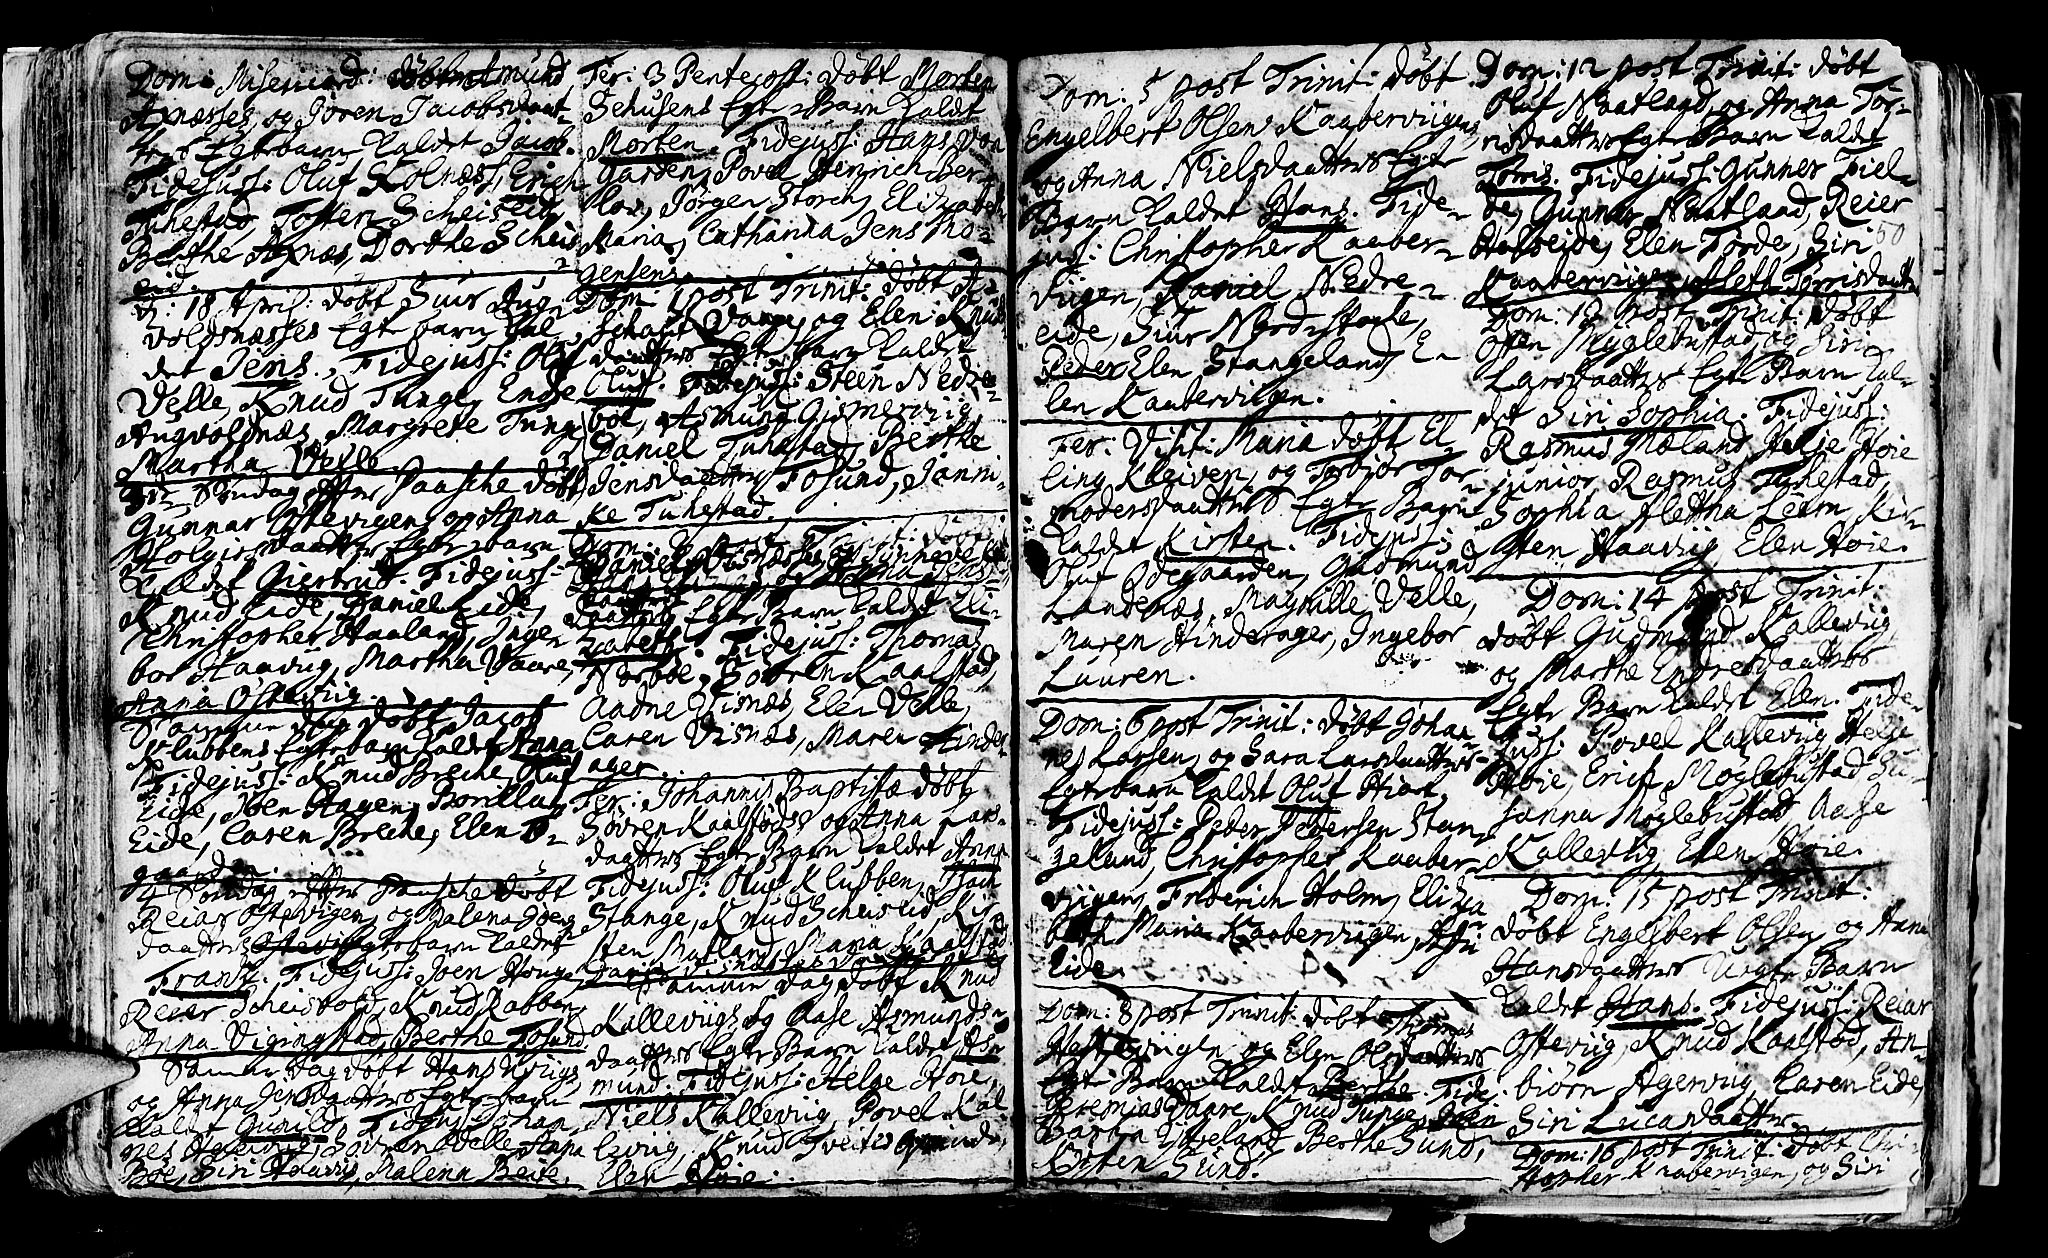 Dom: Misericord: døbt Amund
Axnæsses, og Joren Jacobsdaat-
ters Egte barn kaldet Jacob.
Fidejuss: Oluf Kolnæss, Erich
Tuhestad, Tosten Scheiseid,
Berthe Axnæs, Dorthe Scheis
eid.
D: 18 April: døbt Siur Aug
voldsnæsses Egte barn kal
det Jens. Fidejuss: Oluf
Velle, Knud Tunge, Endre
Augvoldnæs, Margrete Tunge
Martha Velle
3die Søndag efter Paasche døbt
Gunnar Østevigen, og Anna
Holgiersdaatters Egte barn
kaldet Giertrud. Fidejuss:
Knud Eide, Daniel Eide,
Christopher Haaland, Inge-
bor Haavig, Martha Vaare,
Anna Østevig.
Samme dag døbt Jacob
Klubbens Egte barn kaldet Anna
Fidejuss: Knud Breche, Oluf
Eide, Joen Hagen, Borilla
Eide, Caren Breche, Elen Ø-
gaard.
4 Søndag efter Paasche døbt
Reiar Østevigen, og Malena
daatters Egte barn kaldet
Frantz. Fidejuss: Joen Houge
Reier Scheisvold, Knud Rabben,
Anna Viginstad, Berthe Fosund
Samme dag døbt Hans
og Anna Jensdaatters Egte barn
kaldet Gunild. Fidejuss: Johan
nes Haavig, Søvren Velle, Anna
Boe, Siri Haavig, Malena Beite.
Fer: 3 Pentecost: døbt Morten
Schusens Egte Barn kaldet
Morten. Fidejuss: Hans Von
Garden, Povel Henrich Ber-
lov, Jørgen Storch, Elizabeth
Maria, Catharina Jens Tho-
gensens.
Dom 1 post Trinit: døbt A-
schatt Vange, og Elen Knuds
daatters Egte barn kaldet
Oluf. Fidejuss: Steen Nedre-
bøe, Asmund Gismervig,
Daniel Tuhestad, Berthe
Jensdaatter Fosund, Janni-
ke Tuhestad.
Dom: 2 post Trinit: døbt
Daniel Visnæs, og
daatters Egte Barn kaldet Eli-
zabeth. Fidejuss: Thomas
Norbøe, Søvren Kaalstad,
Aadne Visnæs, Elen Velle,
Caren Visnæs, Maren Hinder
ager.
Fer: Johannis Baptistæ døbt
Søvren Kaalstøds, og Anna Lars-
daatters Egte Barn kaldet Anna
Fidejuss: Oluf Klubben,
Stange, Knud Scheiseid, Kir
sten Matland, Maria Kaalstad

Samme Dag døbt Knud
Kallevigs, og Aase Asmunds-
daatters Egte Barn kaldet As-
mund. Fidejuss: Helge Høie,
Niels Kallevig, Povel Kal
levig, Knud Tveite
Elen Høie.
Dom: 5 post Trinit: døbt
Engelbert Olsen Kaabervigen
og Anna Nielsdaatters Egte
Barn kaldet Hans. Fide-
juss: Christopher Kaaber-
vigen, Daniel Nedre-
eide, Siur Nordstocke,
Peder Elen Stangeland, E-
len Kaabervigen.
Fer: Visit: Maria døbt El
ling Kleiven, og Torbior Tor-
modersdaatters Egte Barn
kaldet Kirsten. Fidejuss:
Oluf Ødegaarden, Gudmund
Landenæs, Magnille Velle,
Maren Hinderager, Ingebor
Lauren.
Dom: 6 post Trinit: døbt Johan
nes Larsen, og Sara Larsdaatters
Egte barn kaldet Oluf Hiort.
Fidejuss: Peder Pedersen Stan-
geland, Christopher Kaaber-
vigen, Friderich Holm, Eliza
beth Maria Kaabervigen,
Eide.
Dom: 8 post Trinit: døbt Thomas
Hestevigen, og Elen Olsdaatters
Egte Barn kaldet Berthe. Fide:
Jeremias Vaare, Knud Tunge,
Baarn Ytreland, Berthe Sund,
Kirsten Sund.
Dom: 12 post Trinit: døbt
Oluf Naatland, og Anna Tor-
risdaatters Egte Barn kaldet
Torris. Fidejuss: Gunner Fiel-
de, Gunner Naatland, Reier
Halseide, Elen Førde, Siri
Kaabervigen, Torrisdaatter
50
Dom: 12 post Trinit: døbt
Osten Myglebustad, og Siri
Larsdaatters Egte Barn kal-
det Siri Sophia. Fidejuss:
Rasmus Moeland, Helge Høie
junior, Rasmus Tuhestad,
Sophia Alethna Leem, Kir-
sten Haavig, Elen Høie.
Dom: 14 post Trinit:
døbt Gudmund Kallevig,
og Marthe Endresdaatters
Egte Barn kaldet Elen. Fide-
juss: Povel Kallevig, Helge
Høie, Erich Møglebustad, Su-
sanna Møglebustad, Aase
Kallevig, Elen Høie.
Dom: 15 post Trinit:
døbt Engelbert Olsen, og Anna
Hansdaatters Uegte Barn
kaldet Hans. Fidejuss: Reiar
Østevig, Knud Kaalstød, An-
biørn Agervig, Caren Eide,
Siri Lucasdaatter.
Dom: 16 post Trinit: døbt Chri-
stopher Kaabervigen, og Siri